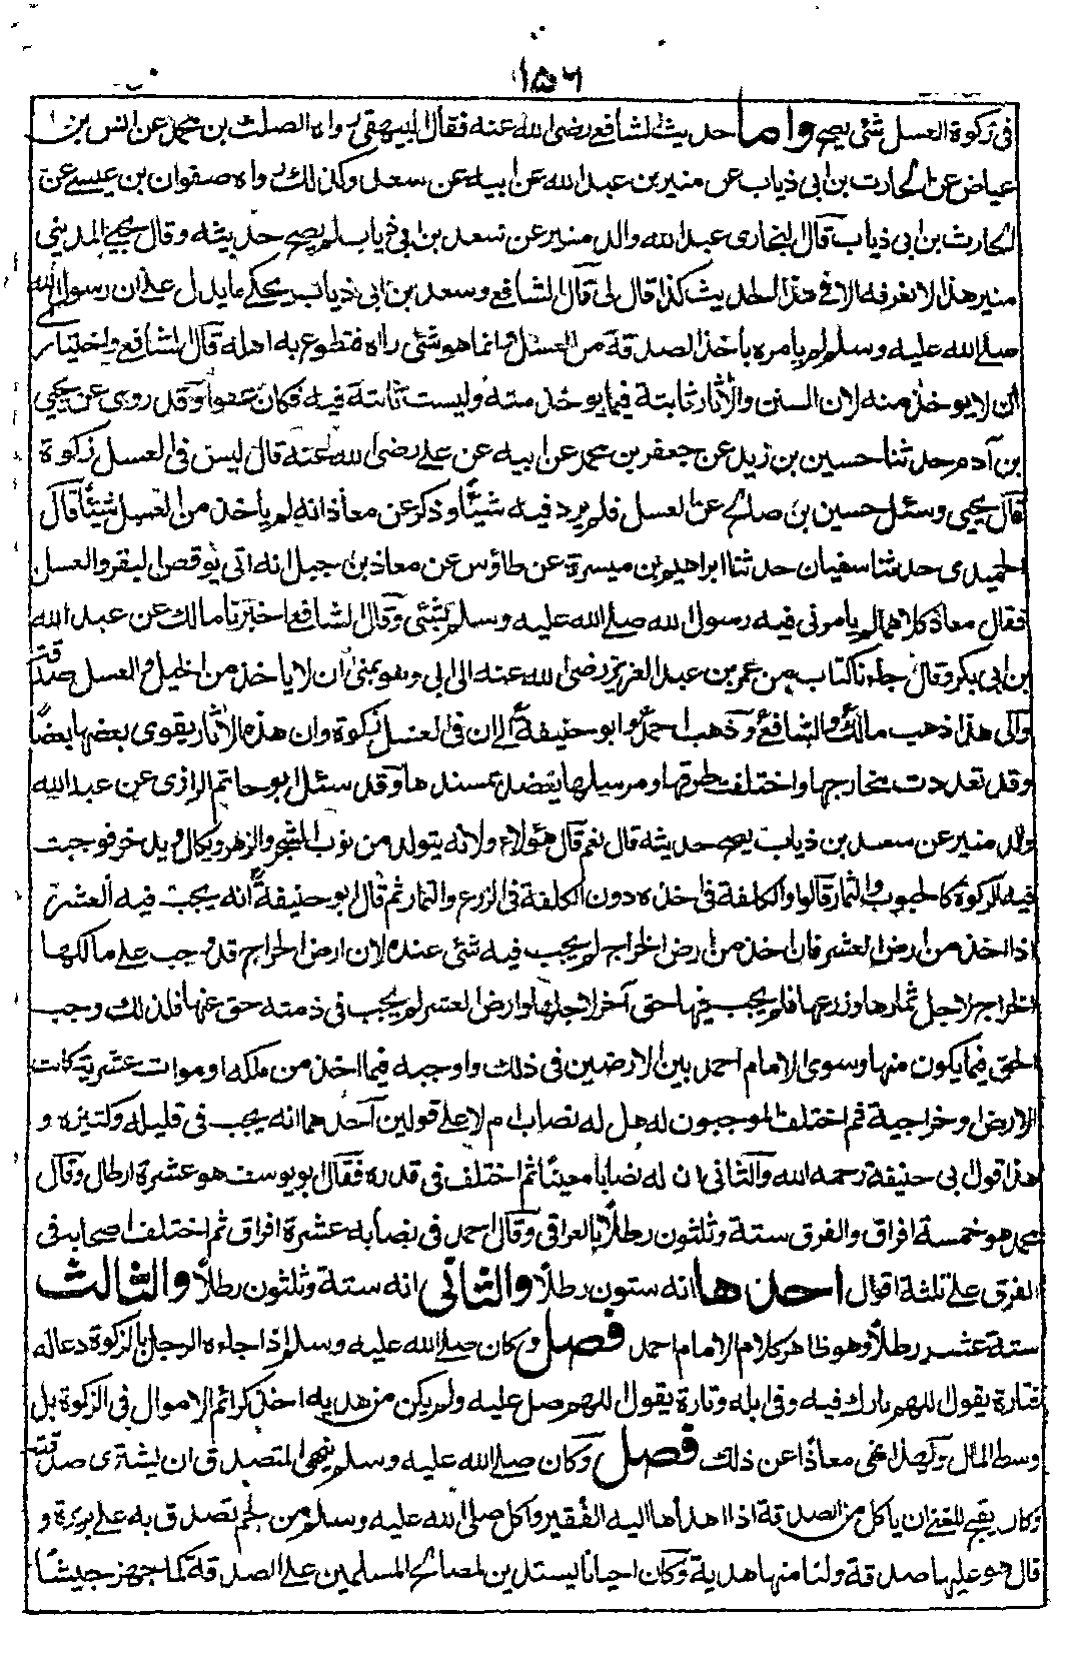 ١٥٦
فی زكوة العسل شئ يصح واما حديث الشافعے رضی الله عنه فقال البيهقی رواه الصلت بن محمد عن انس بن
عياض عن الحارث بن ابی ذباب عن منير بن عبد الله عن ابيه عن سعد وكذلك رواه صفوان بن عيسے عن
الحارث بن ابی ذياب قال البخاری عبد الله والد منير عن سعد بن ابی ذياب لم يصح حديثه وقال علی المدينی
منير هذا لا نعرفه الا فی هذا الحديث كذا قال لی قال الشافعے وسعد بن ابی ذياب يحكے ما يدل علے ان رسول الله
صلے الله عليه وسلم لم يامره باخذ الصدقة من العسل وانما هو شئ راه فتطوع به اهله قال الشافعے واختياری
ان لا يوخذ منه لان السنن والآثار ثابتة فيما يوخذ منه وليست ثابتة فيه فكان عفوا وقد روی عن يحيی
بن آدم حدثنا حسين بن زيد عن جعفر بن محمد عن ابيه عن علے رضی الله عنه قال ليس فی العسل زكوة
قال يحيی وسئل حسين بن صالح عن العسل فلم يرد فيه شيئًا وذكر عن معاذ انه لم ياخذ من العسل شيئًا قال
الحميدی حدثنا سفيان حدثنا ابراهيم بن ميسرة عن طاؤس عن معاذ بن جبل انه اتی بوقص البقر والعسل
فقال معاذ كلاهما لم يامرنی فيه رسول الله صلے الله عليه وسلم بشئ وقال الشافعے اخبرنا مالك عن عبد الله
بن ابی بكر قال جاءنا كتاب من عمر بن عبد العزيز رضی الله عنه الی ابی وهو بمنی ان لا ياخذ من الخيل والعسل صدقة
والی هذا ذهب مالك والشافعی وذهب احمد وابو حنيفة الے ان فی العسل زكوة وان هذه الآثار يقوی بعضها بعضًا
وقد تعددت مخارجها واختلفت طرقها ومرسلها يعضد بمسندها وقد سئل ابو حاتم الرازی عن عبد الله
والد منير عن سعد بن ذياب يصح حديثه قال نعم قال هؤلاء ولانه يتولد من نور الشجر والزهر ويكال ويدخر فوجبت
فيه الزكوة كالحبوب والثمار قالوا والكلفة فی اخذه دون الكلفة فی الزرع والثمار ثم قال ابو حنيفة انه يجب فيه العشر
اذا اخذ من ارض العشر فان اخذ من ارض الخراج لم يجب فيه شئ عنده لان ارض الخراج قد وجب علے مالكها
الخراج لاجل ثمارها وزرعها فلم يجب فيها حق آخر لاجلها وارض العشر لم يجب فی ذمته حق عنها فلذلك وجب
الحق فيما يكون منها وسوی الامام احمد بين الارضين فی ذلك واوجبه فيما اخذ من ملكه او موات عشرية كانت
الارض او خراجية ثم اختلف الموجبون له هل له نصاب ام لا علے قولين احدهما انه يجب فی قليله وكثيره و
هذا قول ابی حنيفة رحمه الله والثانی ان له نصابا معينًا ثم اختلف فی قدره فقال ابو يوسف هو عشرة ارطال وقال
محمد هو خمسة افراق والفرق ستة وثلثون رطلًا بالعراقی وقال احمد فی نصابه عشرة افراق ثم اختلف اصحابه فی
الفرق علے ثلثة اقوال احدها انه ستون رطلًا والثانی انه ستة وثلثون رطلًا والثالث
ستة عشر رطلًا وهو ظاهر كلام الامام احمد فصل وكان صلے الله عليه وسلم اذا جاءه الرجل بالزكوة دعا له
فتارة يقول اللهم بارك فيه وفی ابله وتارة يقول اللهم صل عليه ولم يكن من هديه اخذ كرائم الاموال فی الزكوة بل
وسط المال ولهذا نهی معاذًا عن ذلك فصل وكان صلے الله عليه وسلم ينهی المتصدق ان يشتری صدقته
وكان يبيح للغنی ان ياكل من الصدقة اذا اهداها اليه الفقير واكل صلی الله عليه وسلم من لحم تصدق به علے بريرة و
قال هو عليها صدقة ولنا منها هدية وكان احيانا يستدين لمصالح المسلمين علے الصدقة كما جهز جيشًا